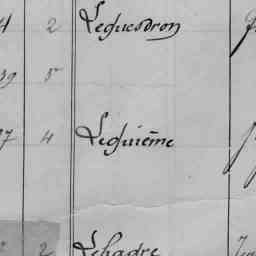 2 Lequesdron
39 5
37 4 Leguième
2 Lehagre